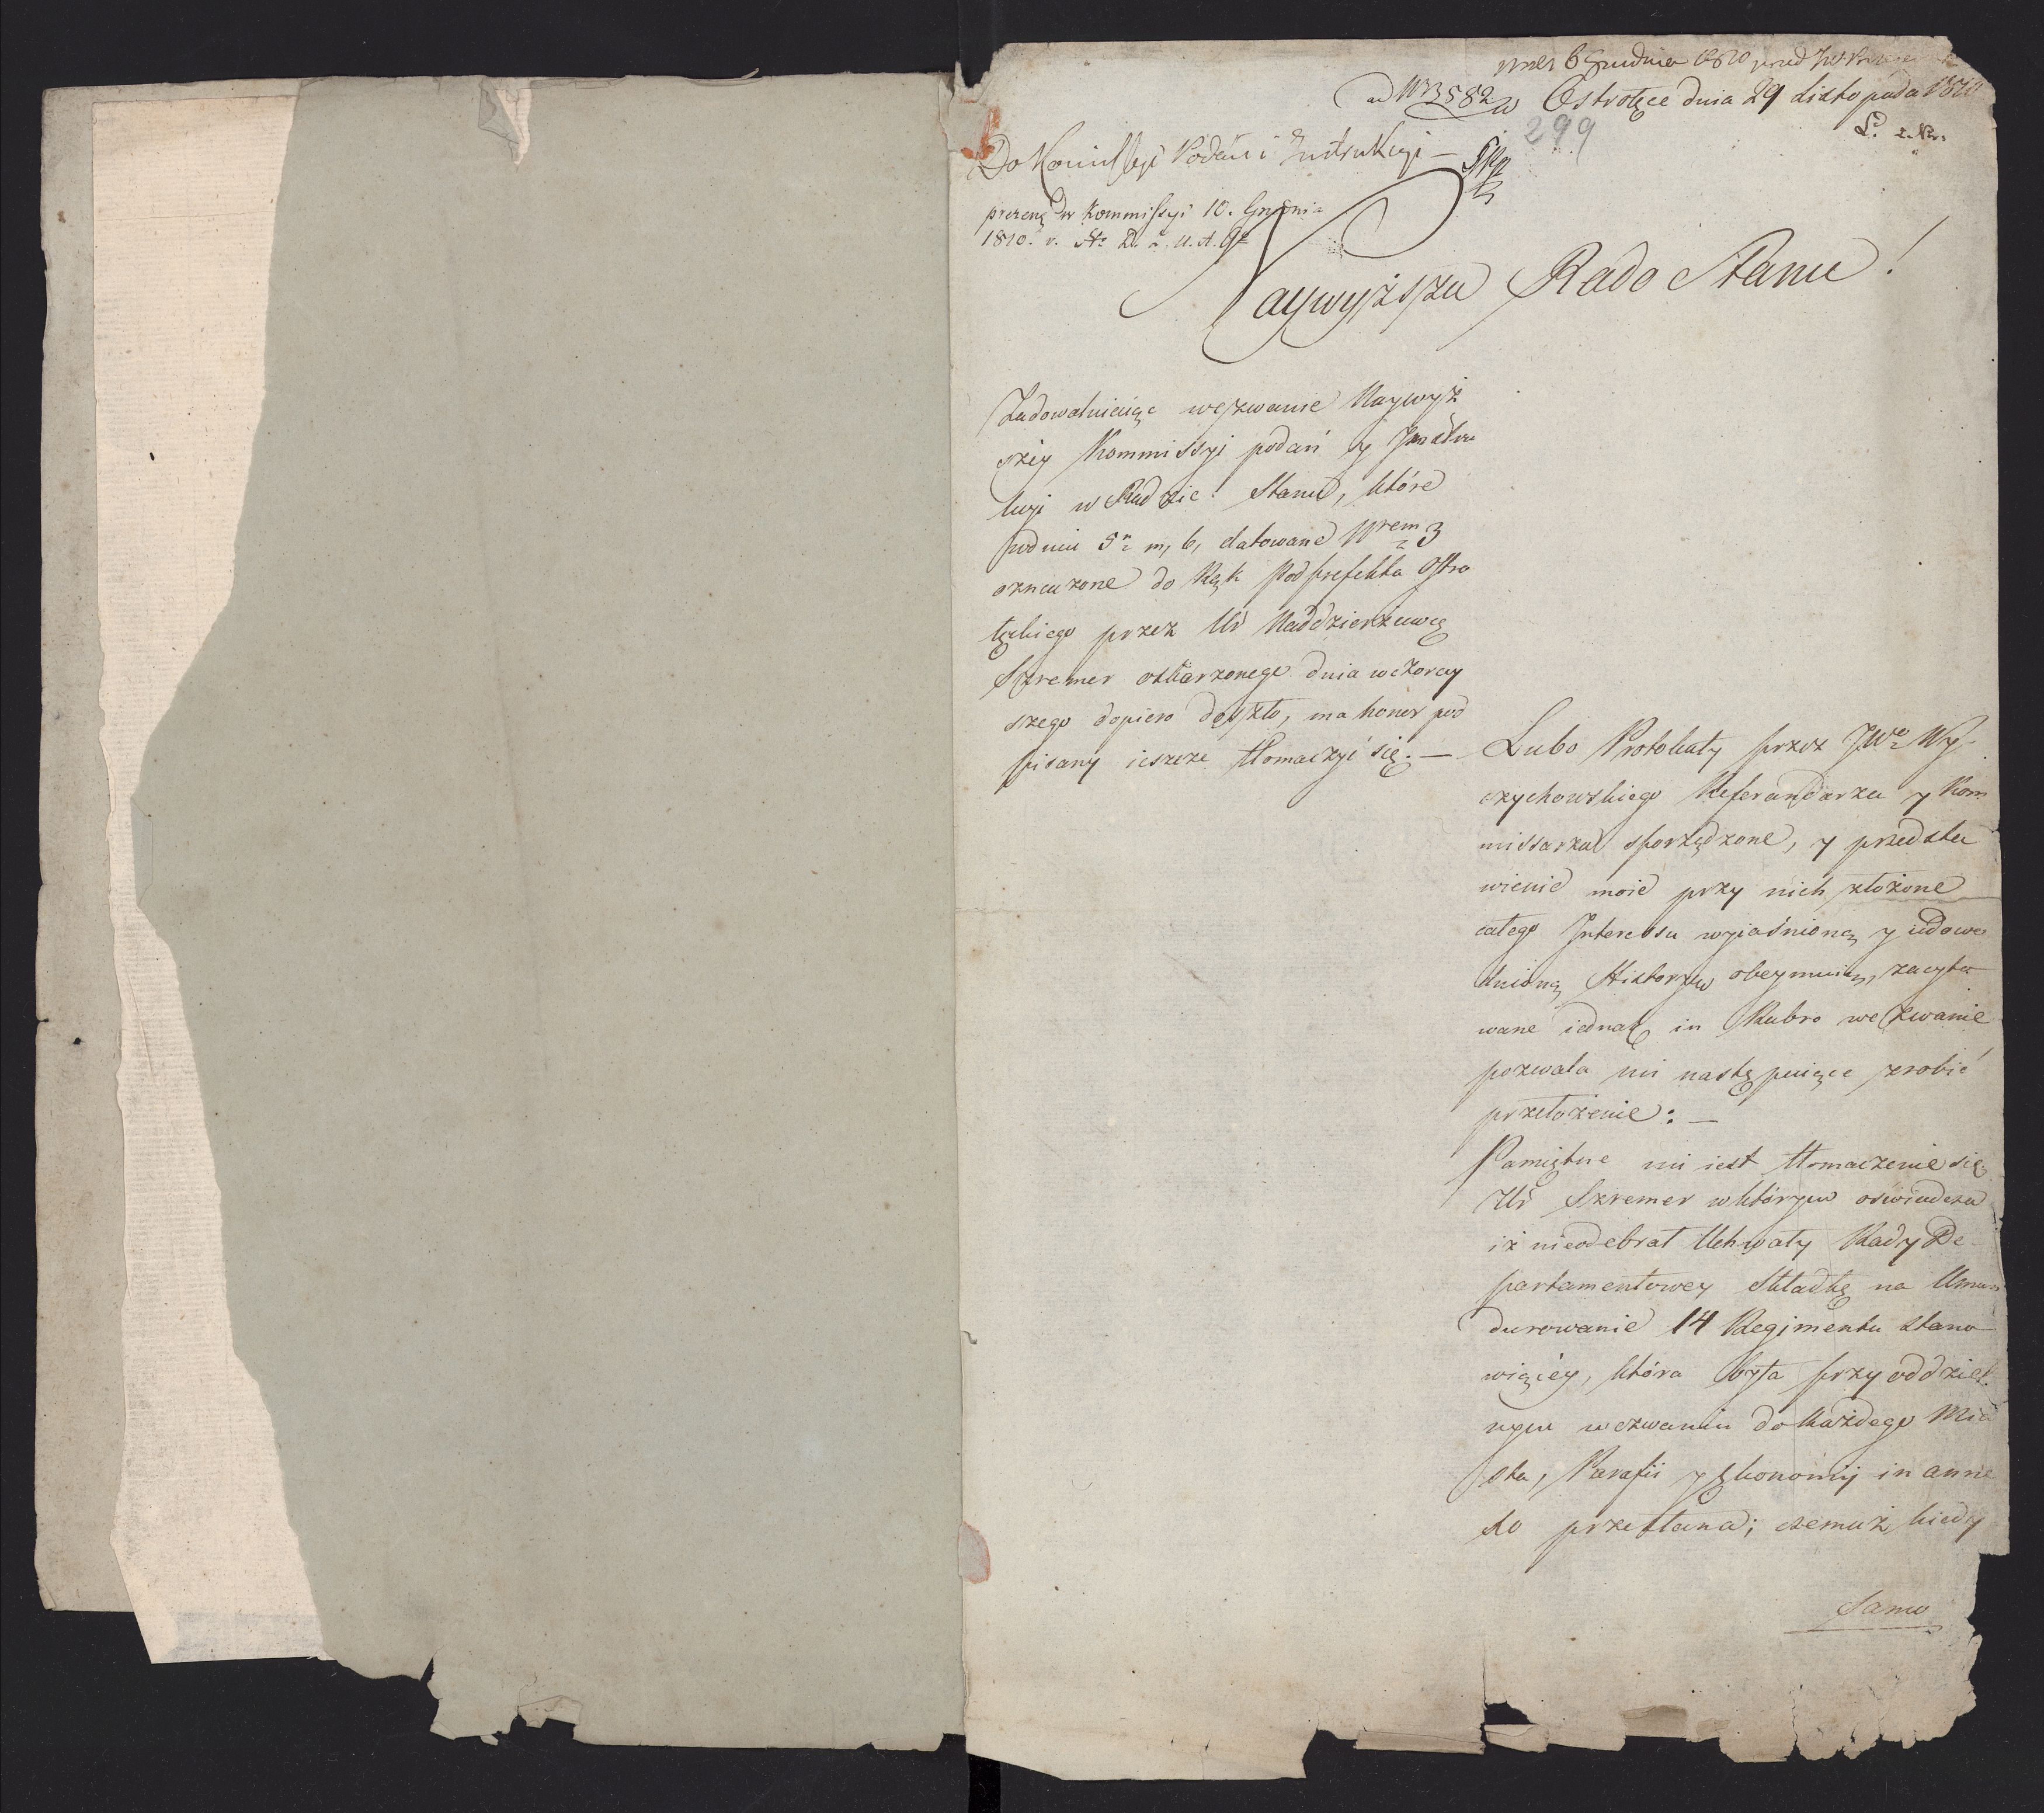 6 Grudnia 1810
ad Nr 3582 w Ostrołęce dnia 29 Listopada 1810
299
Do Kommissyi Podań i Instrukcyi —
prezent. w Kommissyi 10. Grudnia
1810. r. No
Naywyższa Rado Stanu!
Zadowalniaiąc wezwanie Naywyż
széy Kommissyi podań y Instru
kcyi w Radzie Stanu, które
pod dniu 5n m, b, datowane Nrem 3
oznaczone do Rąk Podprefekta Ostro
łęckiego przez Ur Naddzierżawcę
Szremer oskarżonego dnia wczoray
szego dopiero doszło, ma honor pod
pisany ieszcze tłomaczyć się. —
Lubo Protokuły przez JWo Wy
czychowskiego Referendarza y Kom
missarza sporządzone, y przedsta
wienie moie przy nich złożone
całego Interessu wyiaśnioną y udowo
dnioną Historyą obeymuią, zacyto
wane iednak in Rubro wezwanie
pozwala mi następuiące zrobić
przełożenie: —
Pamiętne mi iest tłomaczenie się
Ur Szremer w którym oświadcza
iż nieodebrał Uchwały Rady De
partamentowey Składkę na Umun
durowanie 14 Regimentu stano
wiącéy, która była przy oddziel
nym wezwaniu do każdego Mia
sta, Parafii y Ekonomij in anne
xo przesłana; czemuż kiedy
samo